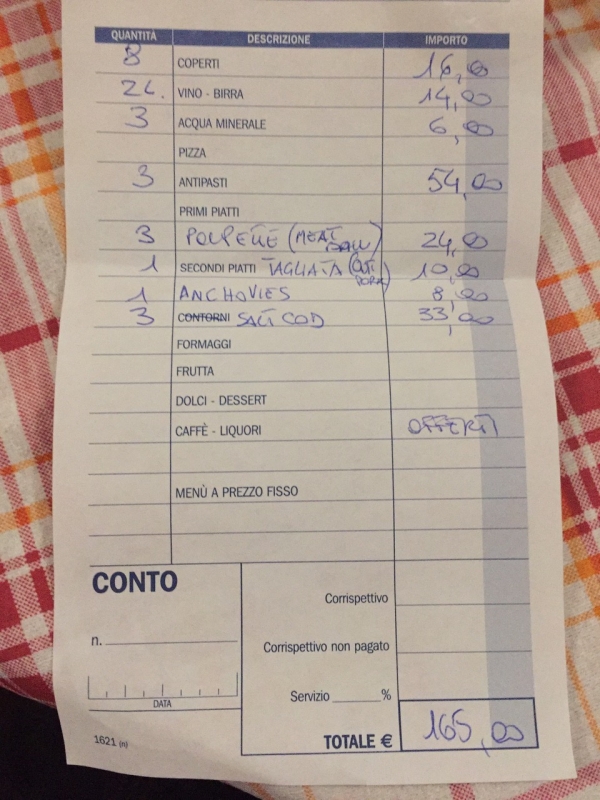 QUANTITÀ DESCRIZIONE IMPORTO
8 COPERTI 16,00
2L. VINO - BIRRA 14,00
3 ACQUA MINERALE 6,00
PIZZA
3 ANTIPASTI 54,00
PRIMI PIATTI
3 POLPETTE (MEAT BALL) 24,00
1 SECONDI PIATTI TAGLIATA 10,00
1 ANCHOVIES 8,00
3 CONTORNI SALT COD 33,00
FORMAGGI
FRUTTA
DOLCI - DESSERT
CAFFÈ - LIQUORI OFFERTI
MENÙ A PREZZO FISSO
CONTO
Corrispettivo
n.
Corrispettivo non pagato
Servizio %
DATA
1621 (n)
TOTALE € 165,00